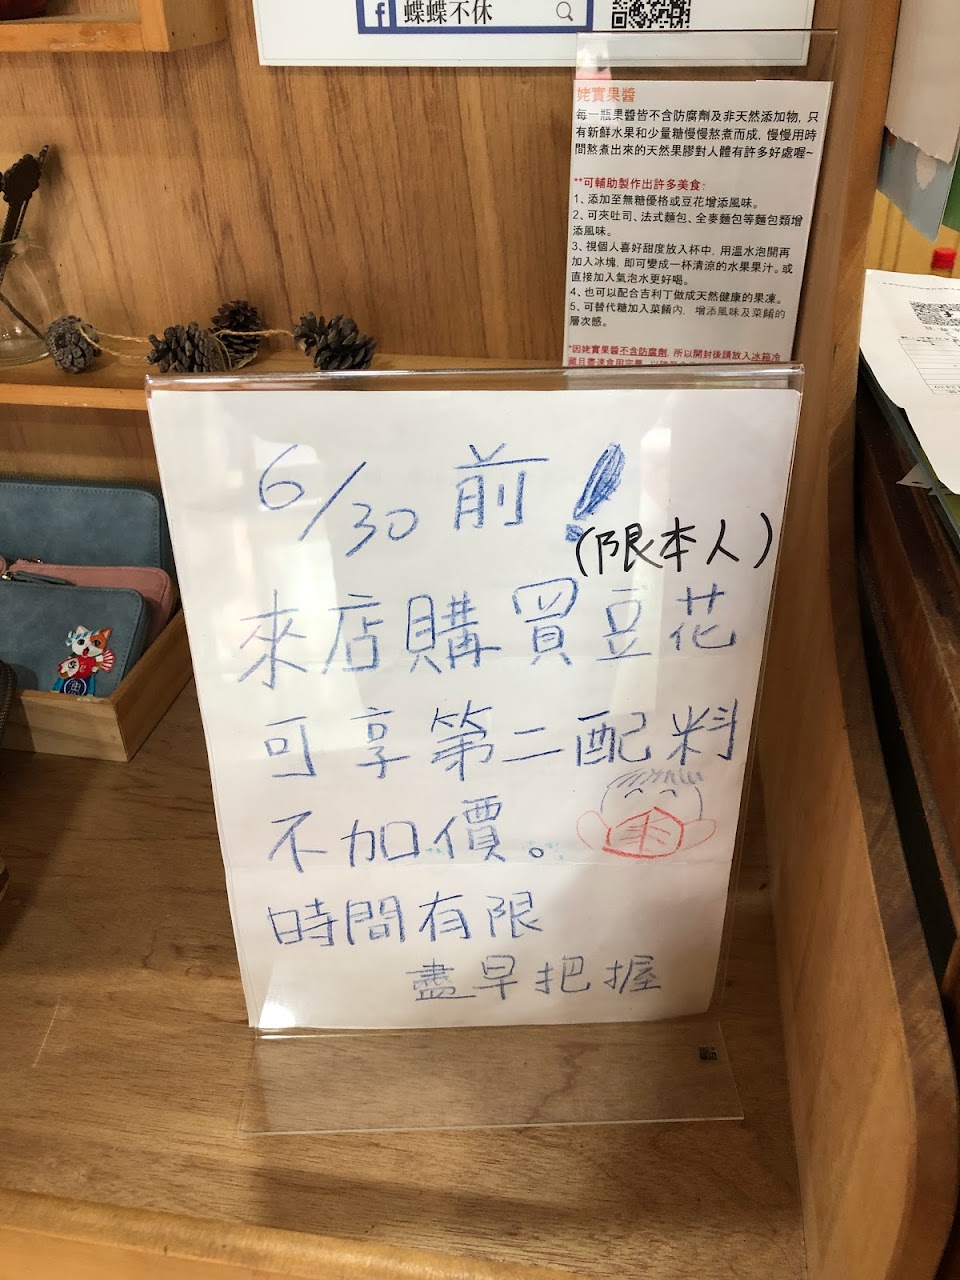 蝶蝶不休
姥寶果醬
每一瓶果醬皆不含防腐劑及非天然添加物, 只
有新鮮水果和少量糖慢慢熬煮而成, 慢慢用時
間熬煮出來的天然果膠對人體有許多好處喔~
**可輔助製作出許多美食:
1、添加至無糖優格或豆花增添風味。
2、可夾吐司、法式麵包、全麥麵包等麵包類增
添風味。
3、視個人喜好甜度放入杯中, 用溫水泡開再
加入冰塊, 即可變成一杯清涼的水果果汁。或
直接加入氣泡水更好喝。
4、也可以配合吉利丁做成天然健康的果凍。
5、可替代糖加入菜餚內, 增添風味及菜餚的
層次感。
*因姥寶果醬不含防腐劑, 所以開封後請放入冰箱冷
6/30前!
(限本人)
來店購買豆花
可享第二配料
不加價。
時間有限
盡早把握